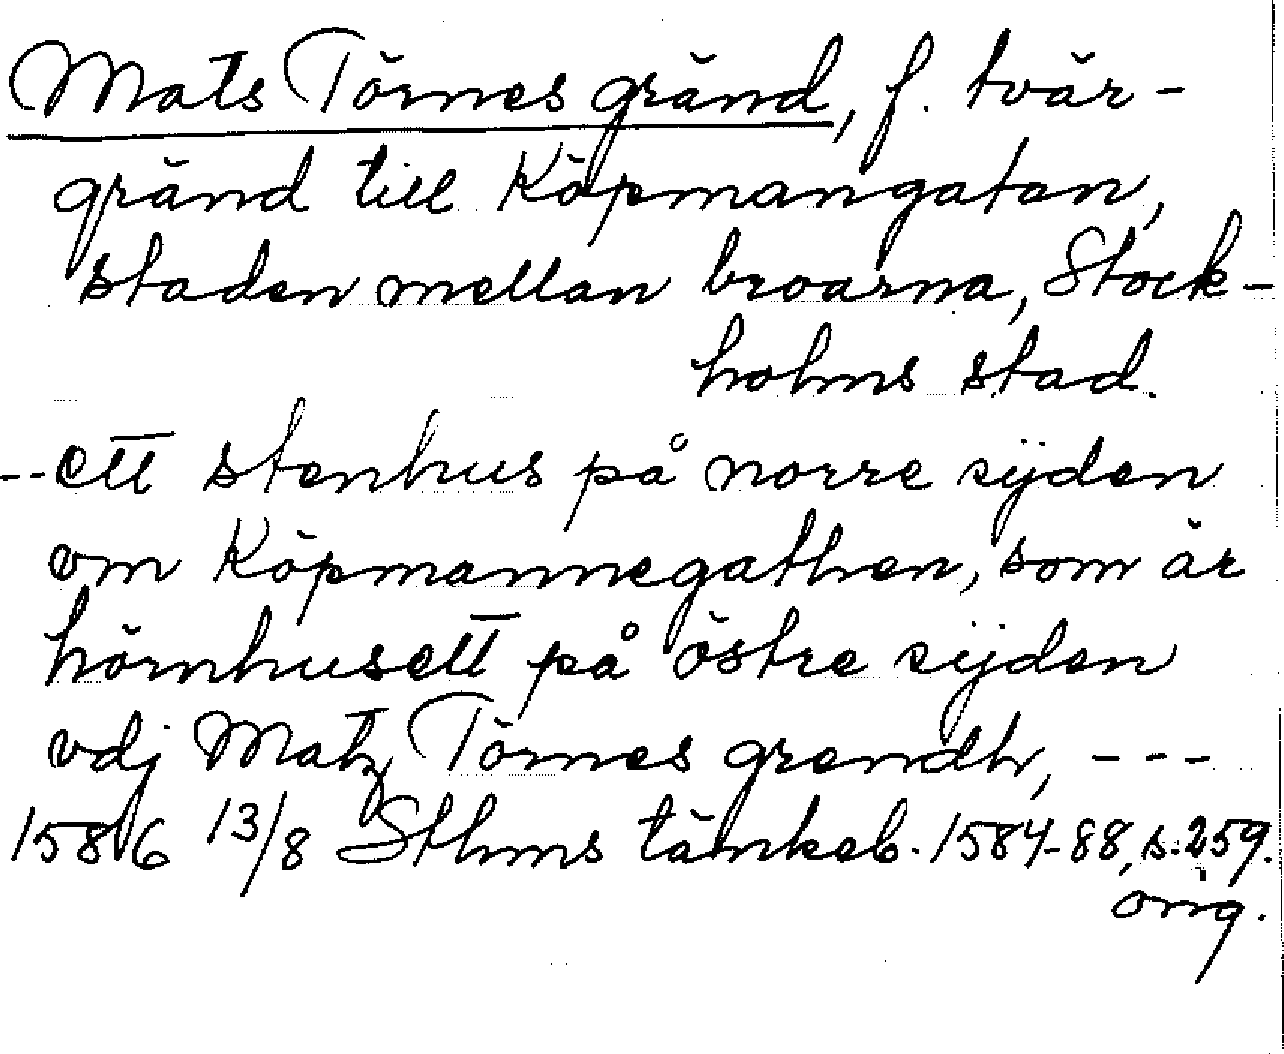 Mats Törnes gränd, f. tvär-
gränd till Köpmangatan,
staden mellan broarna, Stock-
holms stad.
--ett stenhus på norre sijden
om Köpmannegathen, som är
hörnhusett på östre sijden
vdj Matz Törnes grendh, ---
1586 13/8 Sthms tänkeb. 1584-88, s. 259.
orig.